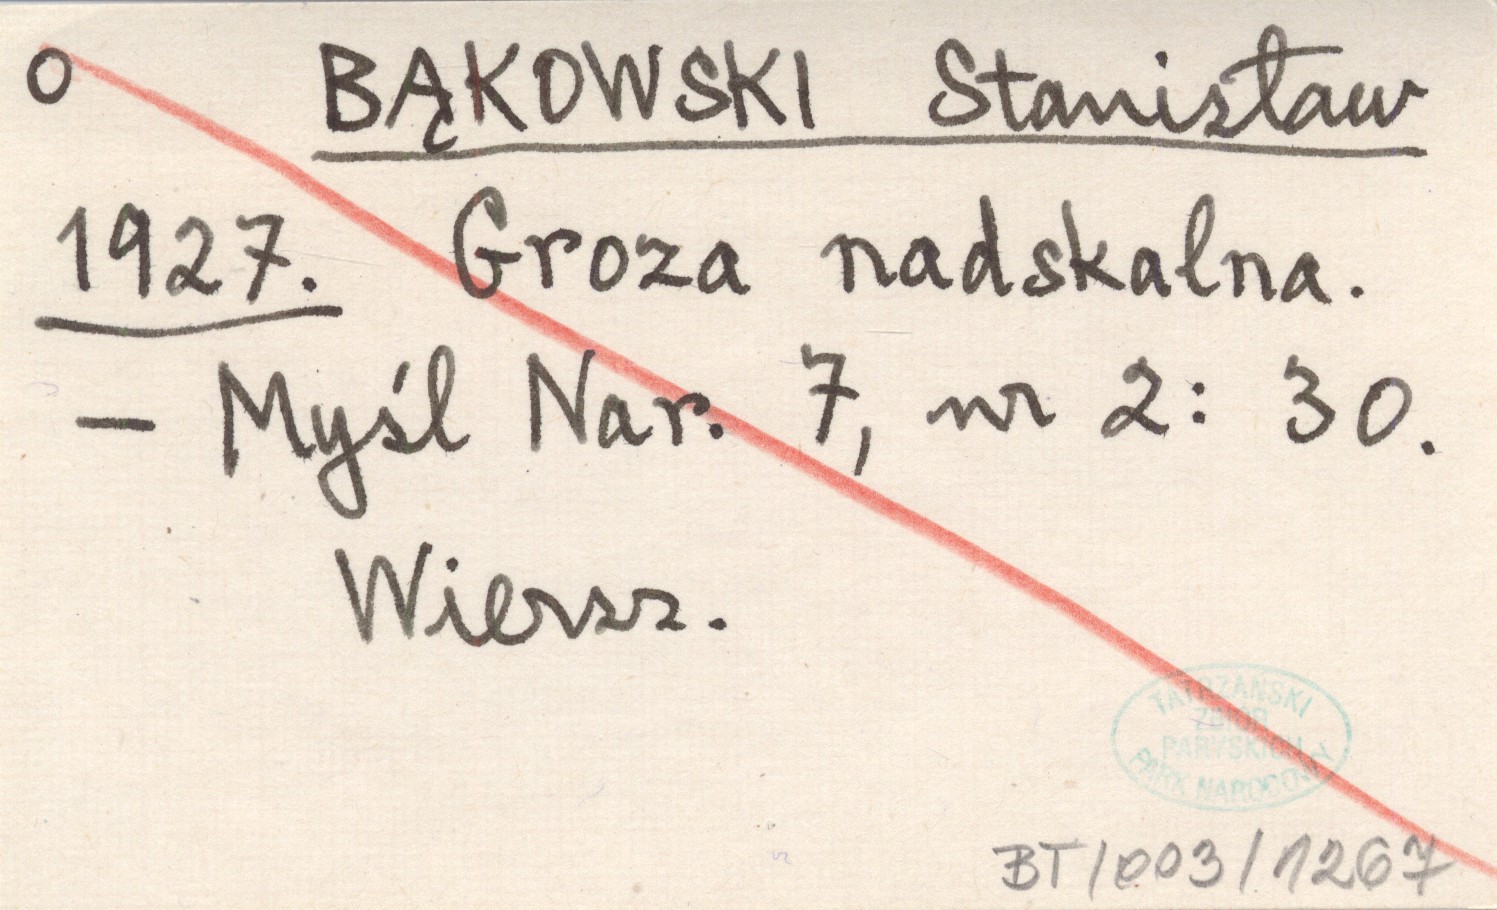 O BĄKOWSKI Stanisław
1927. Groza nadskalna.
— Myśl Nar. 7, nr 2: 30.
Wiersz.
TATRZAŃSKI
ZBIÓR
PARYSKICH
PARK NARODOWY
BT/003/1267